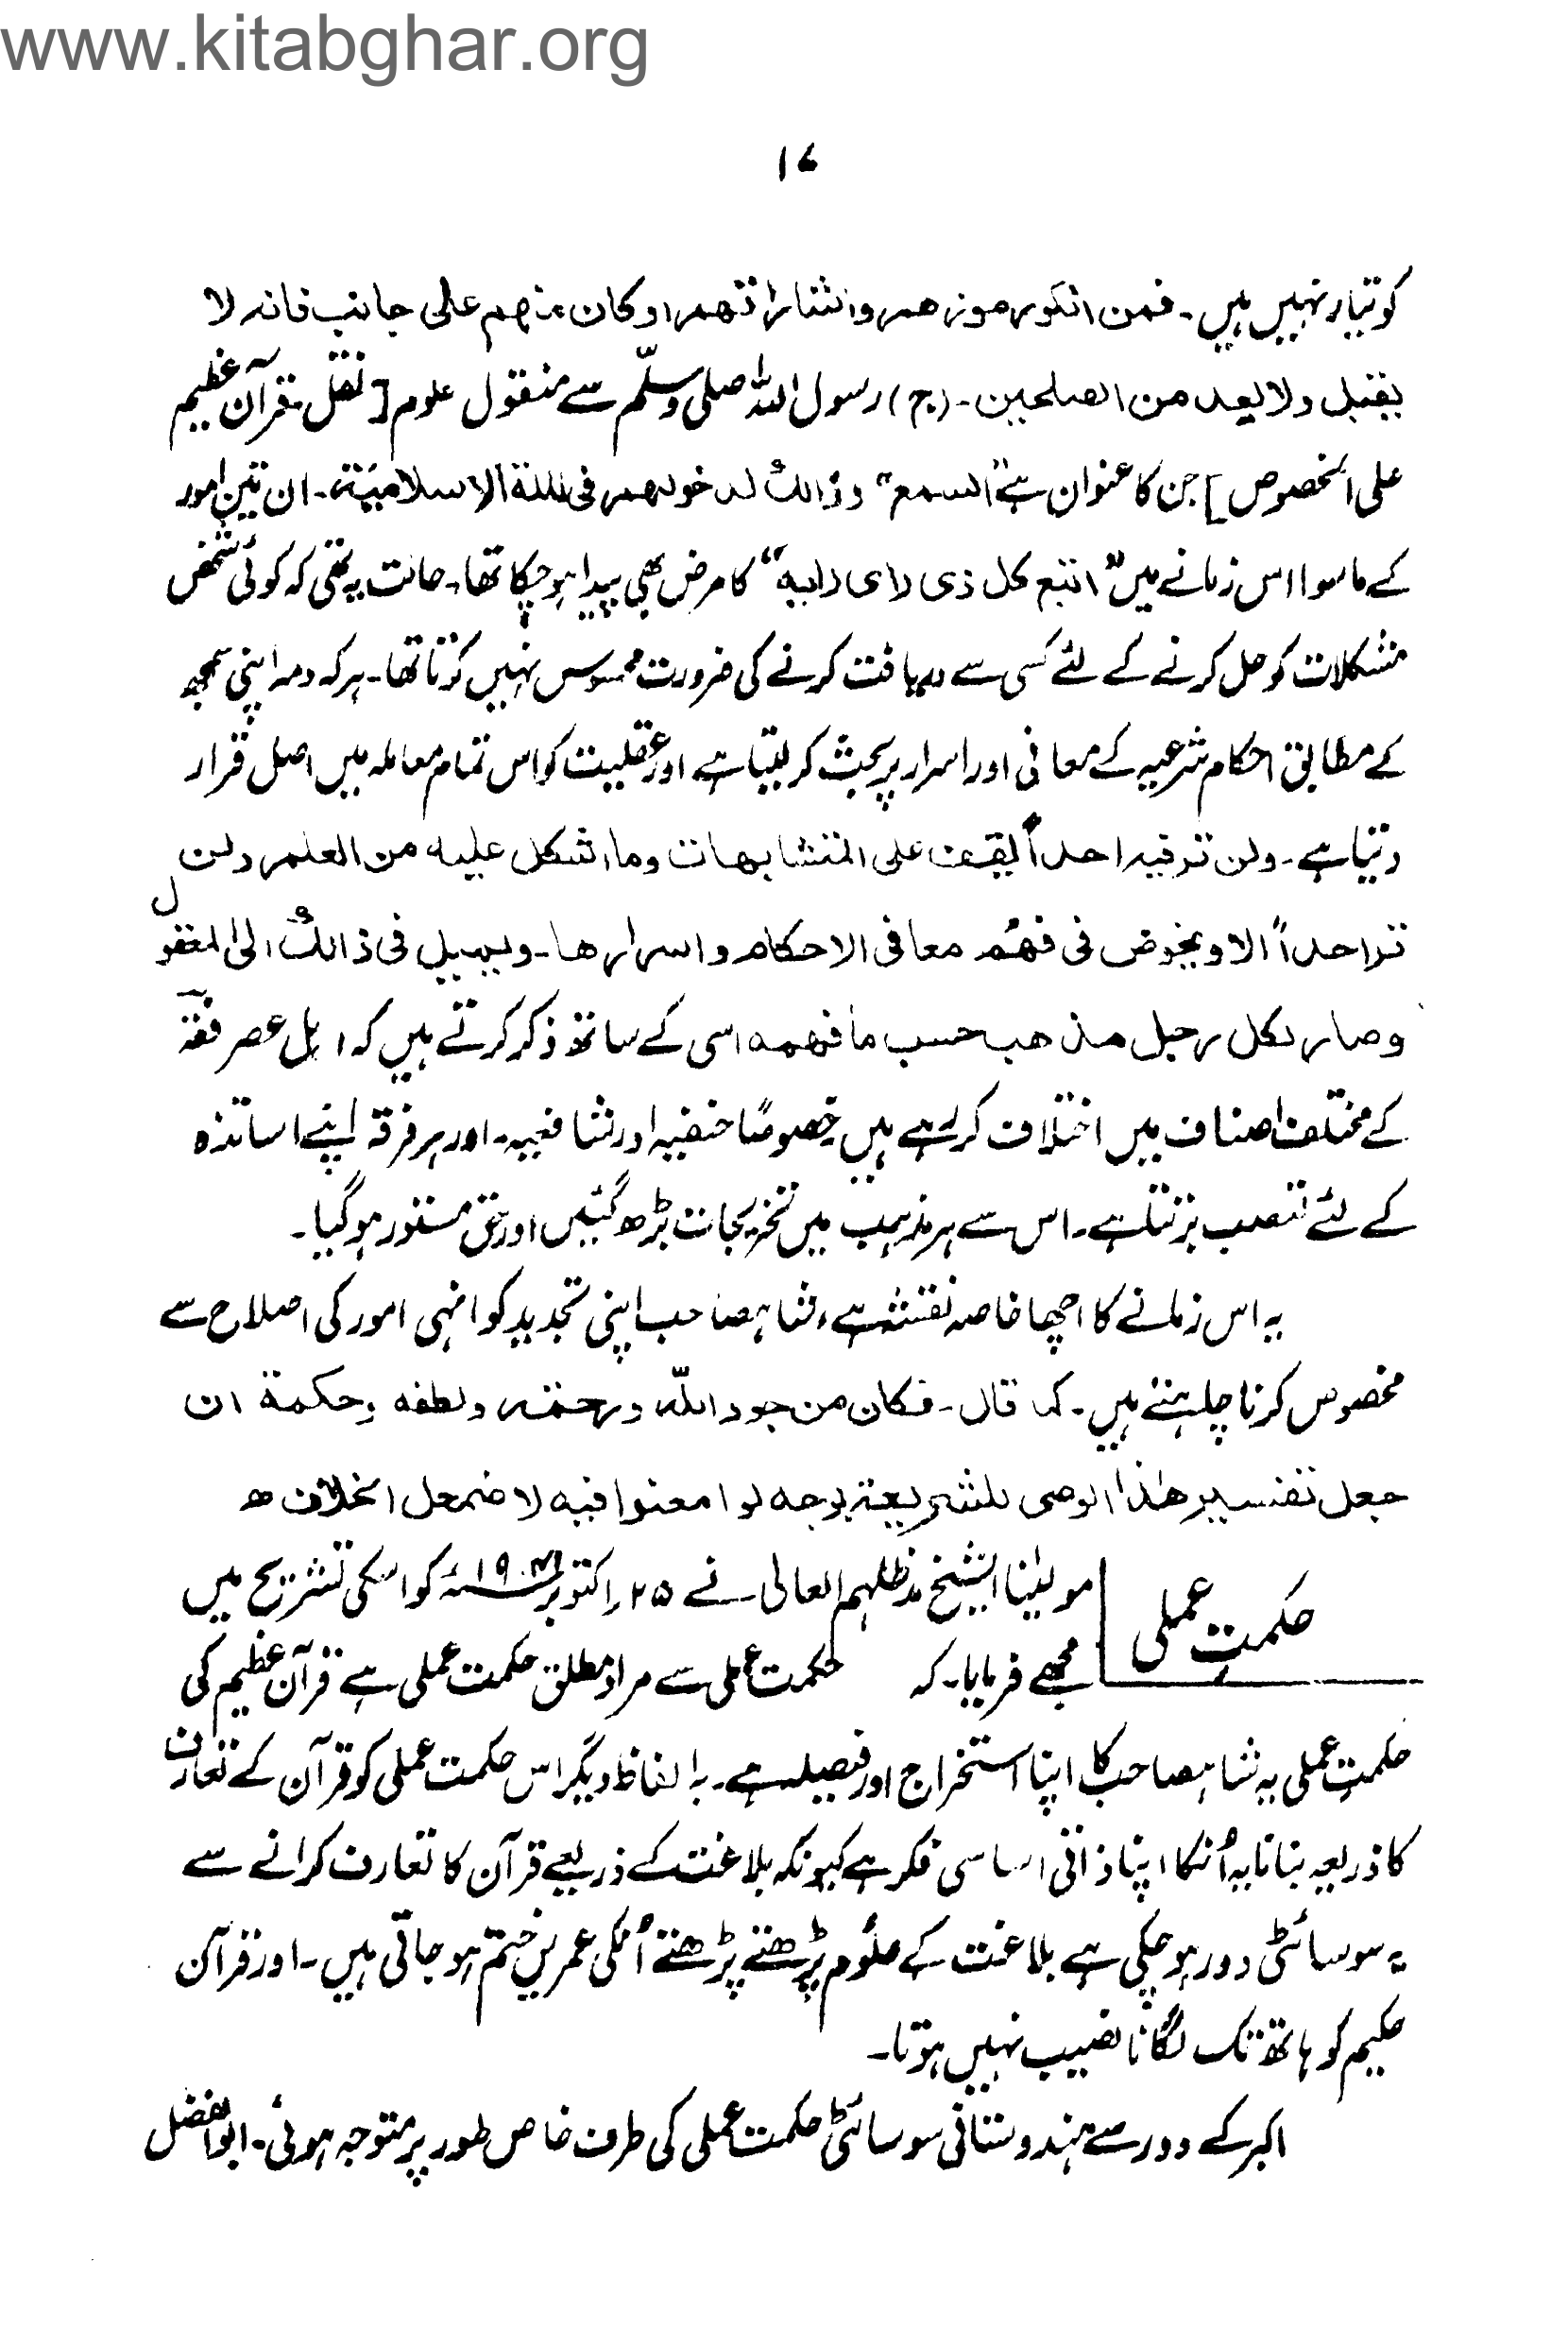 www.kitabghar.org
۱۷
کو تیار نہیں ہیں۔ فمن انکر رموزهم واشاراتهم او کان منهم علی جانب فانه لا
یقبل ولا یعد من الصلحین۔ (ج) رسول اللہ صلی وسلّم سے منقول علوم [نقل قرآن عظیم
علی الخصوص] جن کا عنوان ہے "السمع" وذالك لدخولهم فی الملة الاسلامیّة۔ ان تین امور
کے ماسوا اس زمانے میں "اتبع کل ذی رای رایه" کا مرض بھی پیدا ہو چکا تھا۔ حالت یہ تھی کہ کوئی شخص
مشکلات کو حل کرنے کے لئے کسی سے دریافت کرنے کی ضرورت محسوس نہیں کرتا تھا۔ ہر کہ ومہ اپنی سمجھ
کے مطابق احکام شرعیہ کے معانی اور اسرار پر بحث کر لیتا ہے اور عقلیت کو اس تمام معاملہ میں اصل قرار
دیتا ہے۔ ولن تر فیه احداً یقف علی المتشابهات وما اشکل علیه من العلم ولن
تر احداً الا و یخوض فی فهم معانی الاحکام واسرارها۔ ویمیل فی ذالك الی المعقول
وصار لکل رجل مذهب حسب ما فهمه اسی کے ساتھ ذکر کرتے ہیں کہ اہل عصر فقہ
کے مختلف اصناف میں اختلاف کر رہے ہیں خصوصًا حنفیہ اور شافعیہ۔ اور ہر فرقہ اپنے اساتذہ
کے لئے تعصب برتتا ہے۔ اس سے ہر مذہب میں تخریجات بڑھ گئیں اور حق مستور ہو گیا۔
یہ اس زمانے کا اچھا خاصہ نقشہ ہے، شاہصاحب اپنی تجدید کو انہی امور کی اصلاح سے
مخصوص کرنا چاہتے ہیں۔ کما قال۔ فکان من جود اللّٰه ورحمته ولطفه وحکمة ان
جعل تفسیر هٰذا الوصی للشریعة بوجه لو امعنوا فیه لاضمحل الخلاف ھ
حکمت عملی
مولینا الشیخ مدظلہم العالی نے ۲۵ اکتوبر کو اسکی تشریح میں
مجھے فرمایا۔ کہ حکمت عملی سے مراد مطلق حکمت عملی ہے قرآن عظیم کی
حکمت عملی یہ شاہصاحب کا اپنا استخراج اور فیصلہ ہے۔ بہ الفاظ دیگر اس حکمت عملی کو قرآن کے تعارف
کا ذریعہ بنانا یہ اُنکا اپنا ذاتی اساسی فکر ہے کیونکہ بلاغت کے ذریعے قرآن کا تعارف کرانے سے
یہ سوسائٹی دور ہو چکی ہے بلاغت کے علُوم پڑھتے پڑھتے اُنکی عمریں ختم ہو جاتی ہیں۔ اور قرآن
حکیم کو ہاتھ تک لگانا نصیب نہیں ہوتا۔
اکبر کے دور سے ہندوستانی سوسائٹی حکمت عملی کی طرف خاص طور پر متوجہ ہوئی۔ ابوالفضل